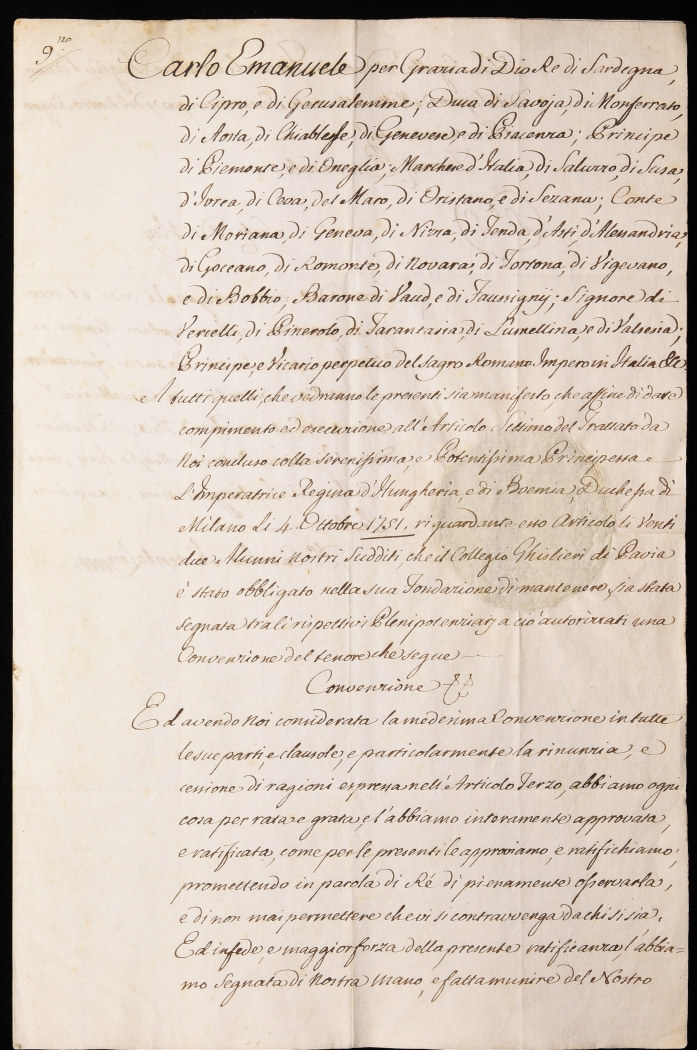 9.no
Carlo Emanuele per Grazia di Dio Re di Sardegna,
di Cipro, e di Gerusalemme; Duca di Savoja, di Monferrato,
di Aosta, di Chiablese, di Genevese, e di Piacenza; Principe
di Piemonte, e di Oneglia; Marchese d'Italia, di Saluzzo, di Susa,
d'Ivrea, di Ceva, del Maro, di Oristano, e di Sezana; Conte
di Moriana, di Geneva, di Nizza, di Tenda, d'Asti, d'Alessandria,
di Goceano, di Romonte, di Novara, di Tortona, di Vigevano,
e di Bobbio; Barone di Vaud, e di Faussignÿ; Signore di
Vercelli, di Pinerolo, di Tarantasia, di Lumellina, e di Valsesia;
Principe, e Vicario perpetuo del Sagro Romano Impero in Italia &c
A tutti quelli, che vedranno le presenti sia manifesto, che affine di dare
compimento ed esecuzione all'Articolo Settimo del Trattato da
Noi concluso colla Serenissima, e Potentissima Principessa
L'Imperatrice Regina d'Hungheria, e di Boemia, Duchessa di
Milano Li 4. Ottobre 1751. riguardante esso Articolo li Venti
due Alunni nostri Sudditi, che il Collegio Ghislieri di Pavia
è stato obbligato nella sua Fondazione di mantenere, sia stata
segnata tra li rispettivi Plenipotenziarj a ciò autorizzati una
Convenzione del tenore che segue
Convenzione
Ed avendo Noi considerata la medesima Convenzione in tutte
le sue parti, e clausole, e particolarmente la rinunzia, e
cessione di ragioni espressa nell'Articolo Terzo, abbiamo ogni
cosa per rata e grata, e l'abbiamo interamente approvata,
e ratificata, come per le presenti le approviamo, e ratifichiamo;
promettendo in parola di Rè di pienamente osservarla,
e di non mai permettere che vi si contravvenga da chi si sia.
Ed in fede, e maggior forza della presente ratificanza, l'abbia=
mo segnata di nostra mano, e fatta munire del Nostro